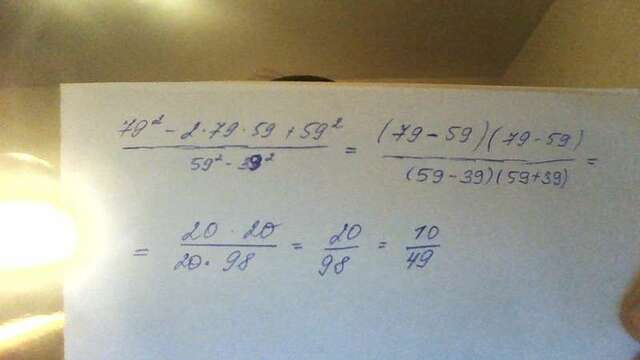 79² - 2·79·59 + 59² / 59² - 39² = (79-59)(79-59) / (59-39)(59+39) =
= 20·20 / 20·98 = 20/98 = 10/49